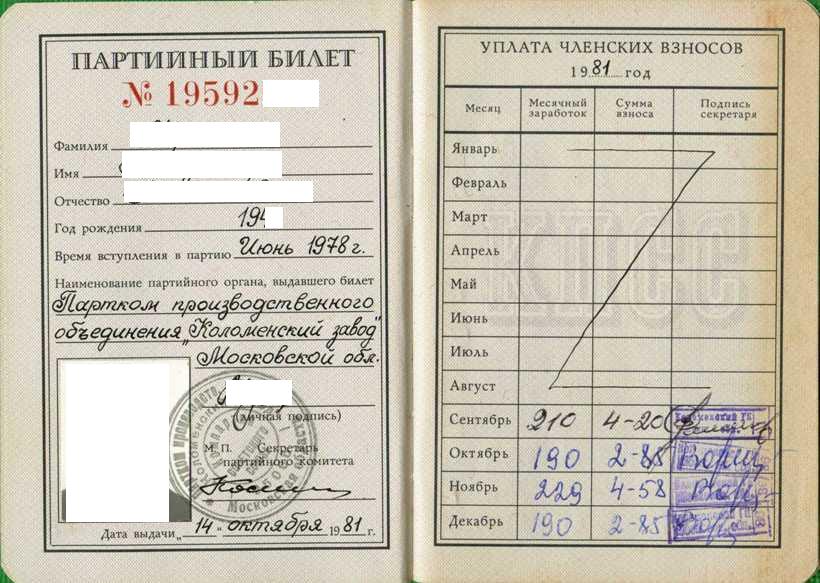 ПАРТИЙНЫЙ БИЛЕТ
№ 19592
Фамилия
Имя
Отчество
Год рождения 194
Время вступления в партию Июнь 1978 г.
Наименование партийного органа, выдавшего билет
Партком производственного
объединения „Коломенский завод"
Московской обл.
(личная подпись)
М. П. Секретарь
партийного комитета
Дата выдачи „14" октября 1981 г.
УПЛАТА ЧЛЕНСКИХ ВЗНОСОВ
1981 год
Месяц Месячный заработок Сумма взноса Подпись секретаря
Январь
Февраль
Март
Апрель
Май
Июнь
Июль
Август
Сентябрь 210 4-20 Коломенский ГК
Октябрь 190 2-85
Ноябрь 229 4-58
Декабрь 190 2-85
КПСС